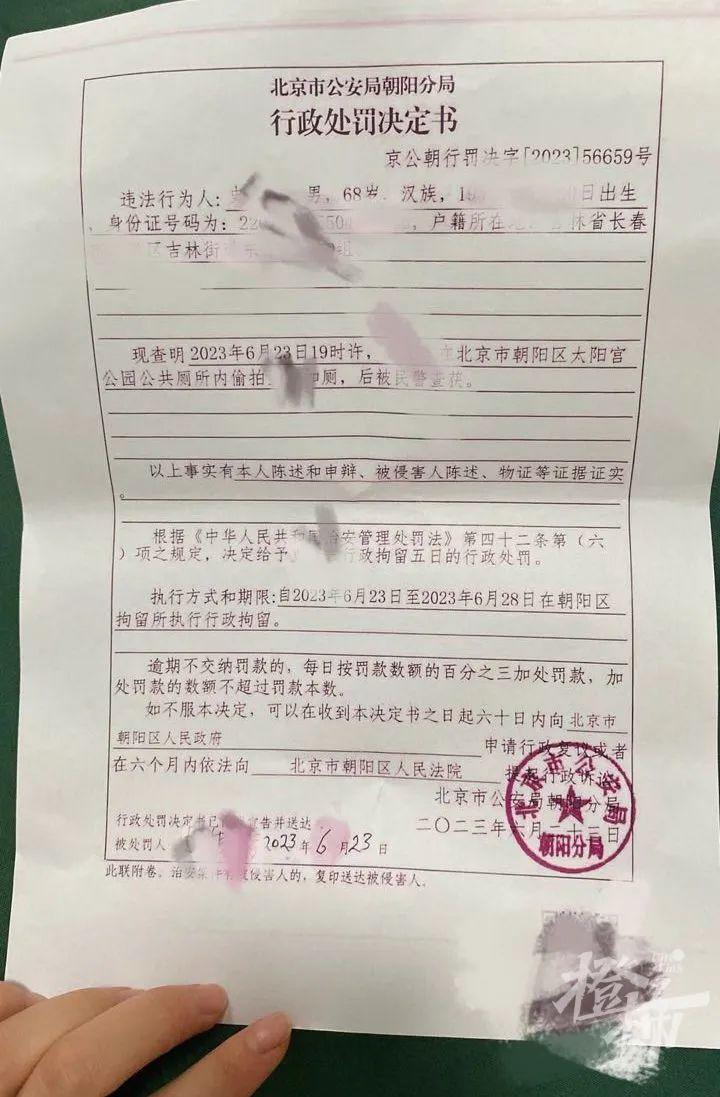 北京市公安局朝阳分局
行政处罚决定书
京公朝行罚决字[2023]56659号
违法行为人: 男, 68岁, 汉族, 日出生
, 身份证号码为: 户籍所在 林省长春
区吉林街
现查明 2023年6月23日19时许, 在北京市朝阳区太阳宫
公园公共厕所内偷拍 如厕, 后被民警查获。
以上事实有本人陈述和申辩、被侵害人陈述、物证等证据证实
。
根据《中华人民共和国治安管理处罚法》第四十二条第(六
)项之规定, 决定给予 行政拘留五日的行政处罚。
执行方式和期限:自2023年6月23日至2023年6月28日在朝阳区
拘留所执行行政拘留。
逾期不交纳罚款的, 每日按罚款数额的百分之三加处罚款, 加
处罚款的数额不超过罚款本数。
如不服本决定, 可以在收到本决定书之日起六十日内向 北京市
朝阳区人民政府 申请行政复议或者
在六个月内依法向 北京市朝阳区人民法院 提起行政诉讼
北京市公安局朝阳分局
二〇二三年六月二十三日
北京市公安局
朝阳分局
行政处罚决定书已 宣告并送达
被处罚人 2023年6月23日
此联附卷。治安案件有被侵害人的, 复印送达被侵害人。
橙柿